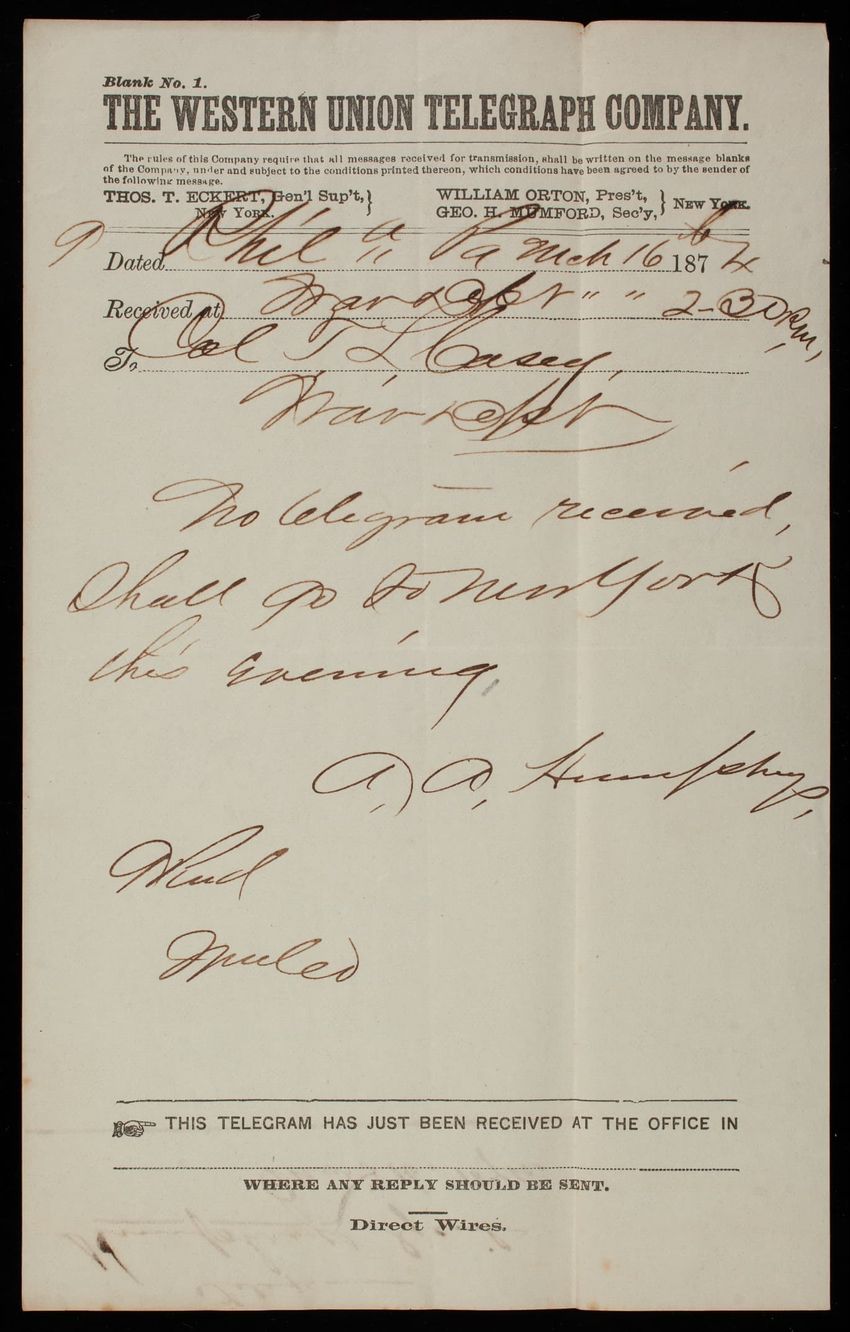 Blank No. 1.
THE WESTERN UNION TELEGRAPH COMPANY.
The rules of this Company require that all messages received for transmission, shall be written on the message blanks
of the Company, under and subject to the conditions printed thereon, which conditions have been agreed to by the sender of
the following message.
THOS. T. ECKERT, Gen'l Sup't, } WILLIAM ORTON, Pres't, } NEW YORK.
NEW YORK. GEO. H. MUMFORD, Sec'y,
Dated Phil a Pa Mch 16 1874
Received at War Dept " " 2-30 pm,
To Col T. L. Casey,
War Dept
No telegram received,
Shall go to New York
this evening,
A, A, Humphreys,
THIS TELEGRAM HAS JUST BEEN RECEIVED AT THE OFFICE IN
WHERE ANY REPLY SHOULD BE SENT.
Direct Wires.